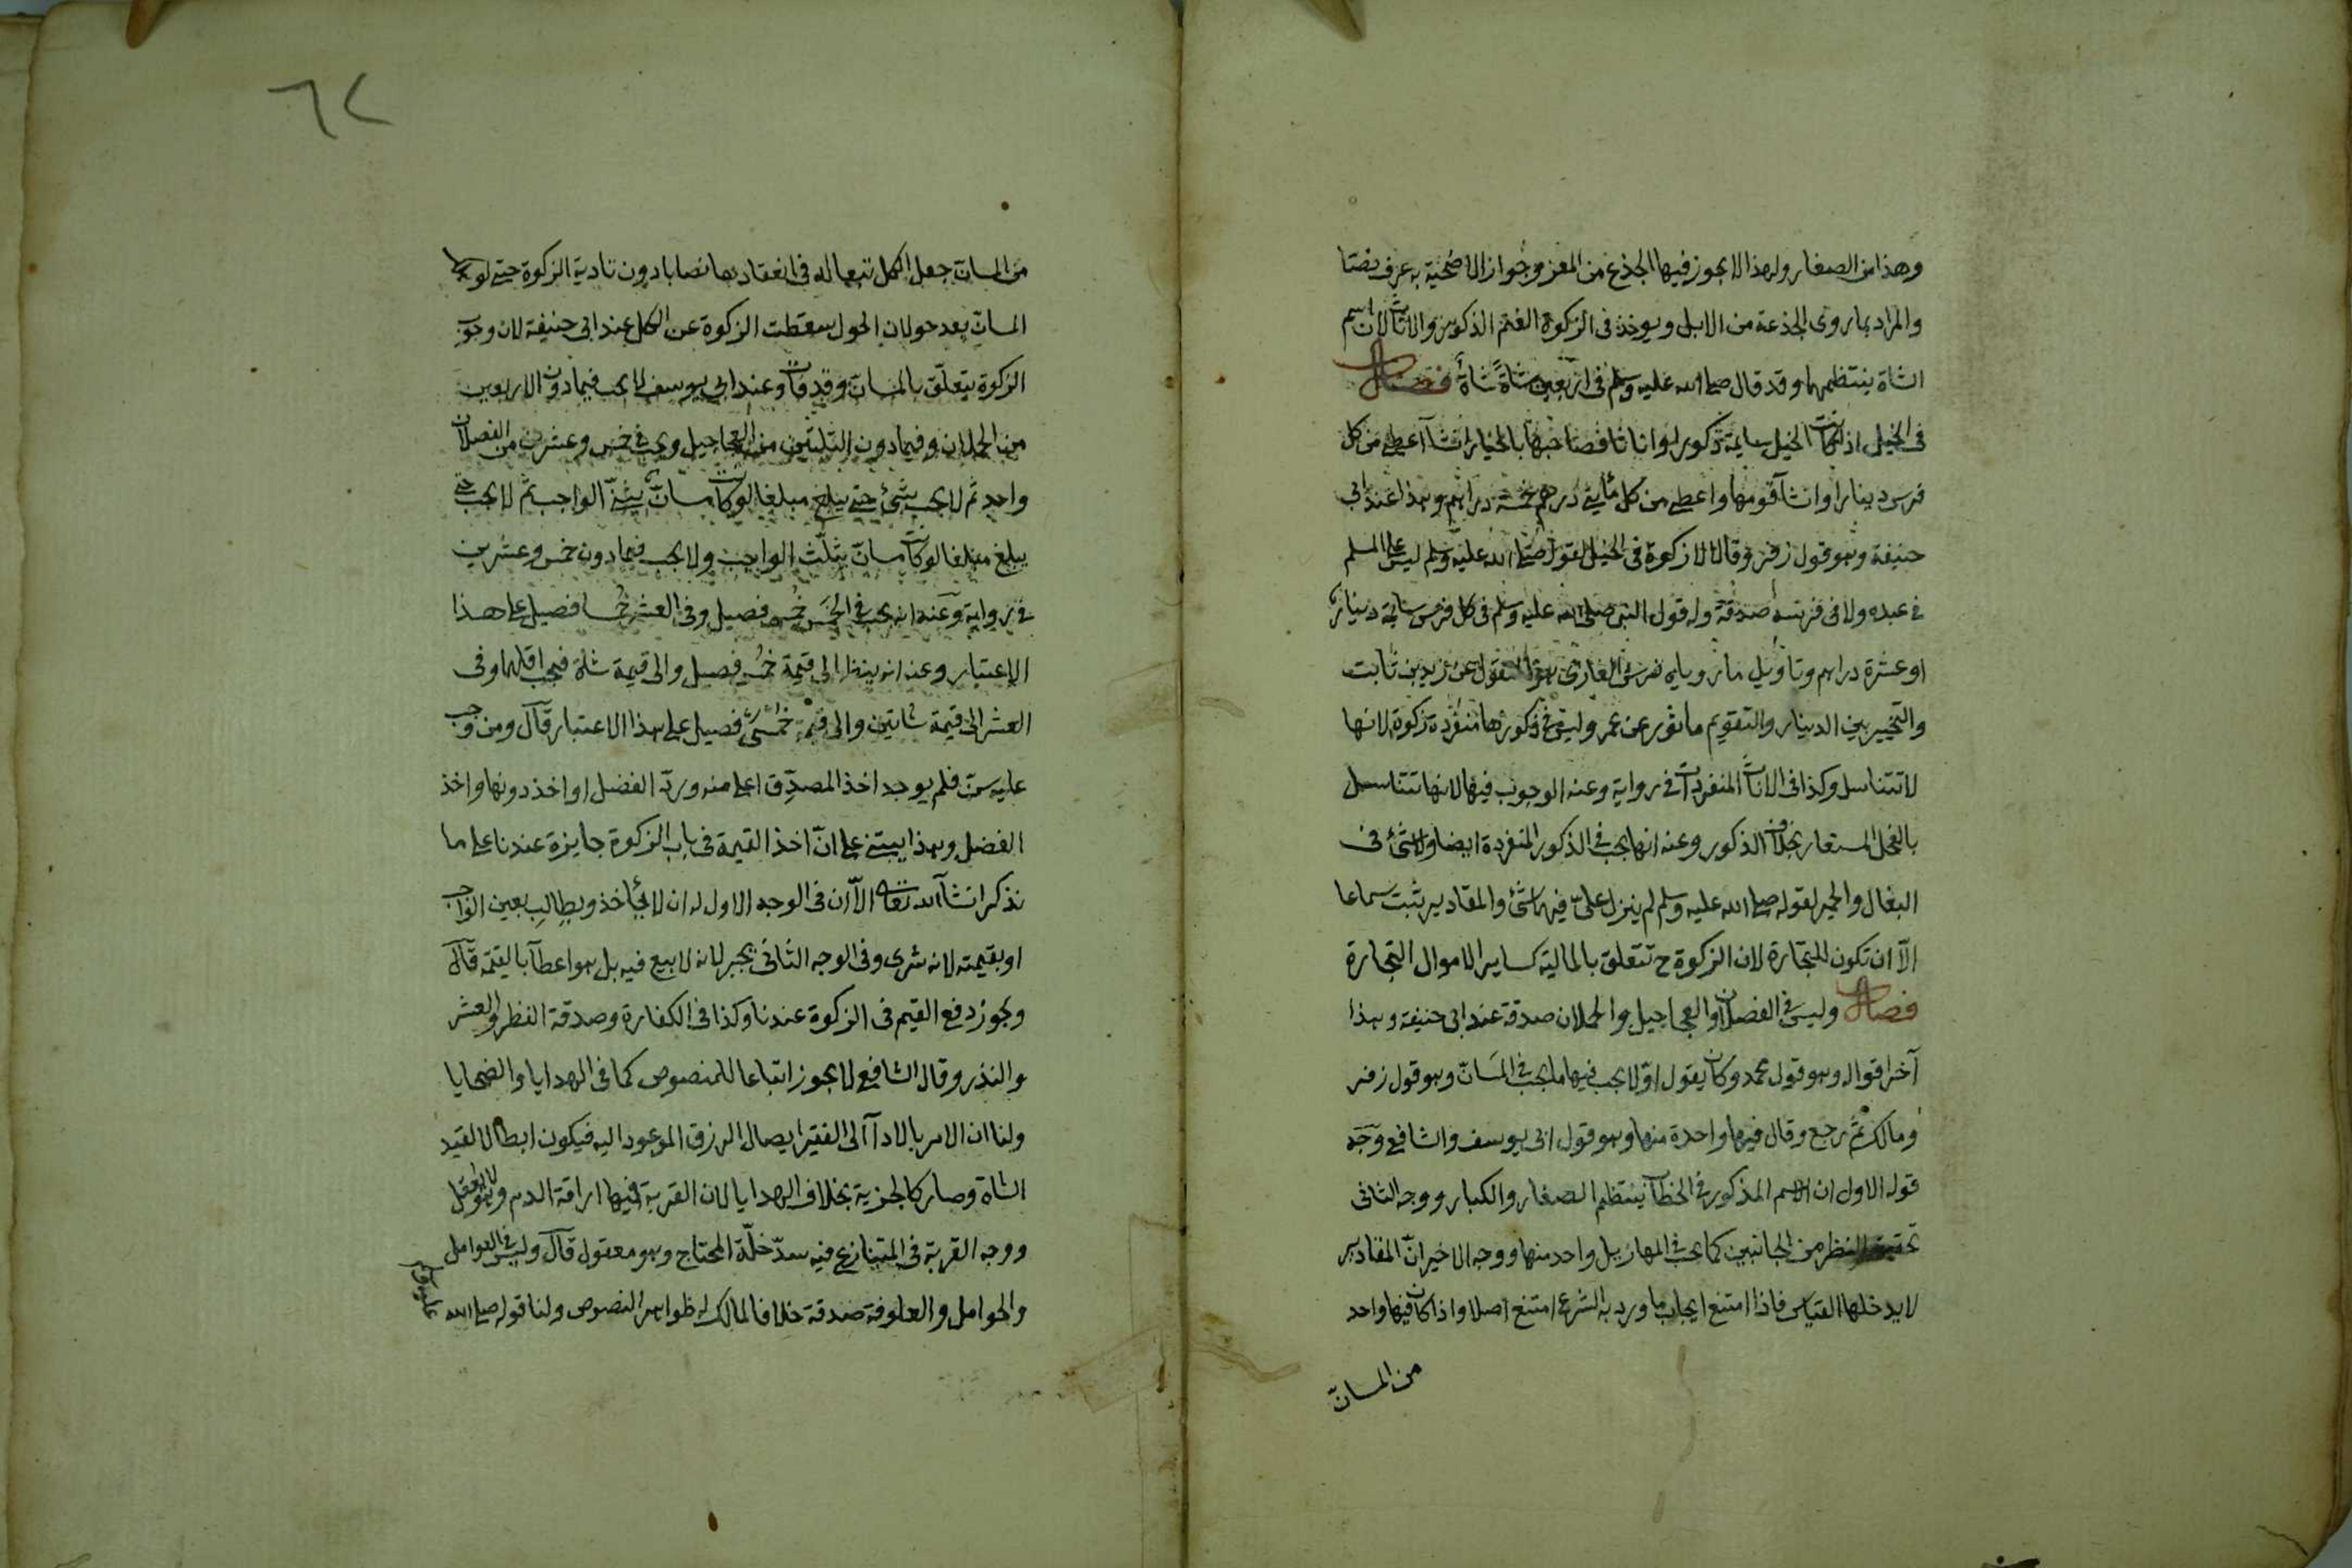 وهذا من الصغار ولهذا لا يجوز فيها الجذع من المعز وجواز الاضحية به عرف نصا
والمراد بما روى الجذعة من الابل ويوخذ فى الزكوة الغنم الذكور والاناث لان اسم
الشاة ينتظمهما وقد قال صلى الله عليه وسلم فى اربعين شاةً شاةٌ فصل
فى الخيل اذا كانت الخيل سايمة ذكورا واناثا فصاحبها بالخيار ان شآ اعطى من كل
فرس دينارا وان شآ قومها واعطى من كل مأيتى درهم خمسة دراهم وهذا عند ابى
حنيفة وهو قول زفر وقالا لا زكوة فى الخيل لقوله صلى الله عليه وسلم ليس على المسلم
فى عبده ولا فى فرسه صدقة وله قول النبى صلى الله عليه وسلم فى كل فرس سايمة دينار
او عشرة دراهم وتاويل ما روياه فرس الغازى هو المنقول عن زيد بن ثابت
والتخيير بين الدينار والتقويم ماثور عن عمر وليس فى ذكورها منفردة زكوة لانها
لا تتناسل وكذا فى الاناث المنفردات فى رواية وعنه الوجوب فيها لانها تتناسل
بالفحل المستعار بخلاف الذكور وعنه انها يجب فى الذكور المنفردة ايضا ولا شئ فى
البغال والحمير لقوله صلى الله عليه وسلم لم ينزل علىّ فيهما شئ والمقادير يثبت سماعا
الاّ ان تكون للتجارة لان الزكوة ح تتعلق بالمالية كساير الاموال التجارة
فصل وليس فى الفصلان والعجاجيل والحملان صدقة عند ابى حنيفة وهذا
آخر اقواله وهو قول محمد وكان يقول اوّلا يجب فيها ما يجب فى المسانّ وهو قول زفر
ومالك ثمّ رجع وقال فيها واحدة منها وهو قول ابى يوسف والشافعى وجه
قوله الاول ان الاسم المذكور فى الخطاب ينتظم الصغار والكبار ووجه الثانى
تحقيق النظر من الجانبين كما يجب فى المهازيل واحد منها ووجه الاخير انّ المقادير
لا يدخلها القياس فاذا امتنع ايجاب ما ورد به الشرع امتنع اصلا واذا كان فيها واحد
من المسانّ
٦٢
من المسانّ جعل الكل تبعا له فى انعقادها نصابا دون تادية الزكوة حتى لو هلك
المسانّ بعد حولان الحول سقطت الزكوة عن الكل عند ابى حنيفة لان وجوب
الزكوة يتعلّق بالمسانّ وقد فات وعند ابى يوسف لا يجب فيما دون الاربعين
من الحملان وفيما دون الثلثين من العجاجيل ويجب فى خمس وعشرين من الفصلان
واحد ثم لا يجب شئ حتى يبلغ مبلغا لو كانت مسانّ يثنّى الواجب ثم لا يجب حتى
يبلغ مبلغا لو كانت مسانّ يثلّث الواجب ولا يجب فيما دون خمس وعشرين
فى رواية وعنه انه يجب فى الخمس خمس فصيل وفى العشر خمسا فصيل على هذا
الاعتبار وعنه انه ينظر الى قيمة خمس فصيل والى قيمة شاة فيجب اقلهما وفى
العشر الى قيمة شاتين والى قيمة خمسى فصيل على هذا الاعتبار قال ومن وجب
عليه سن فلم يوجد اخذ المصدّق اعلى منه وردّ الفضل او اخذ دونها واخذ
الفضل وهذا يبتنى على انّ اخذ القيمة فى باب الزكوة جايزة عندنا على ما
نذكر ان شآ الله تعالى الاّ ان فى الوجه الاول له ان لا يأخذ ويطالب بعين الواجب
او بقيمته لانه شرى وفى الوجه الثانى يجبر لانه لا بيع فيه بل هو اعطآ بالقيمة قال
ويجوز دفع القيم فى الزكوة عندنا وكذا فى الكفارة وصدقة الفطر والعشر
والنذر وقال الشافعى لا يجوز اتباعا للمنصوص كما فى الهدايا والضحايا
ولنا ان الامر بالادآ الى الفقير ايصال الرزق الموعود اليه فيكون ابطالا لقيد
الشاة وصار كالجزية بخلاف الهدايا لان القربة فيها اراقة الدم وهو لا يعقل
ووجه القربة فى المتنازع فيه سدّ خلّة المحتاج وهو معقول قال وليس فى العوامل
والحوامل والعلوفة صدقة خلافا لمالك له ظواهر النصوص ولنا قوله صلى الله